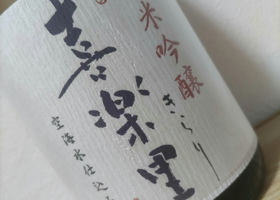 米吟醸
喜楽里
きらり
空海水仕込